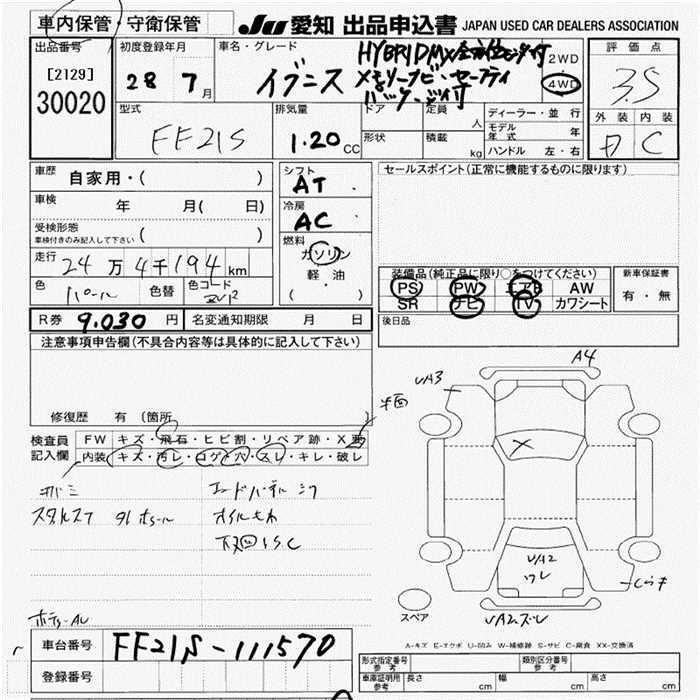 車内保管・守衛保管
JU 愛知 出品申込書 JAPAN USED CAR DEALERS ASSOCIATION
出品番号
[2129]
30020
初度登録年月
28 7月
車名・グレード
イグニス
HYBRID MX
メモリーナビ・セーフティ
パッケージ付
2WD
4WD
評価点
3.5
外装 内装
D C
型式
FF21S
排気量
1.20 CC
ドア
形状
定員 人
積載 kg
ディーラー・並行
モデル年式 年
ハンドル 左・右
車歴
自家用・( )
車検 年 月( 日)
受検形態
車検付きのみ記入して下さい ( )
走行
24万4千194km
色 パール 色替 色コード
シフト
AT
冷房
AC
燃料
ガソリン
軽・油
( ・ )
セールスポイント(正常に機能するものに限ります)
装備品(純正品に限り○をつけてください)
PS PW エアB AW
SR ナビ TV カワシート
新車保証書
有・無
後日品
R券 9.030 円 名変通知期限 月 日
注意事項申告欄(不具合内容等は具体的に記入して下さい)
修復歴 有 (箇所 )
検査員記入欄
FW キズ・飛石・ヒビ割・リペア跡・X要
内装 キズ・汚レ・コゲ・穴・スレ・キレ・破レ
オイルモレ
下回りSC
UA3
A4
X
UA2
ワレ
スペア
A-キズ E-エクボ U-凹み W-補修跡 S-サビ C-腐食 XX-交換済
車台番号 FF21S-111570
登録番号
形式指定番号 参考
類別区分番号 参考
車庫証明用 参考
長さ cm 幅 cm 高さ cm